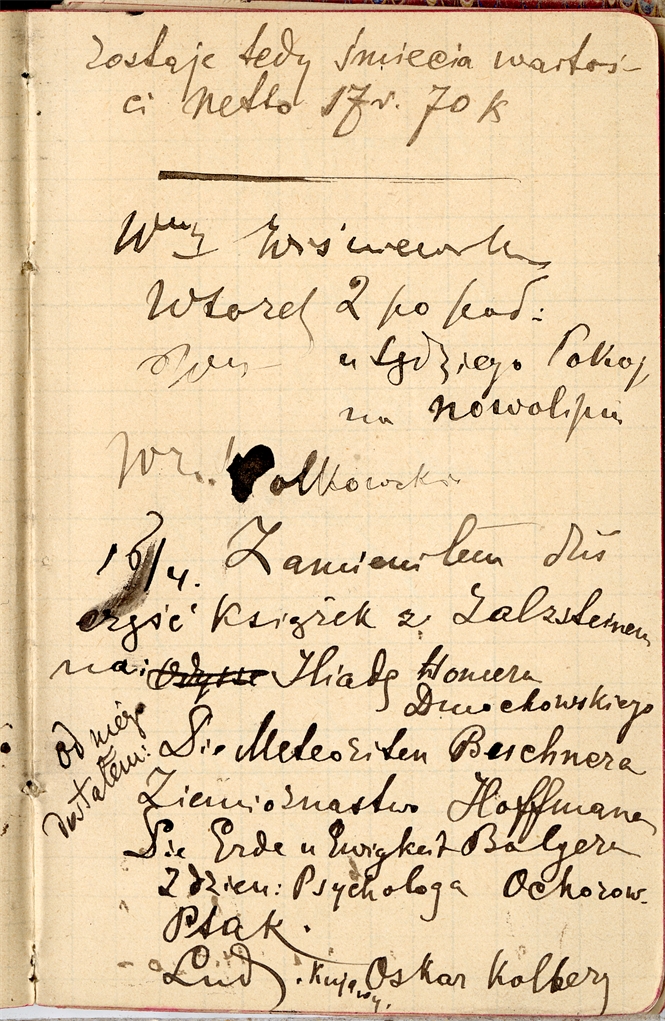 zostaje tedy śmiecia wartoś-
ci netto 17 r. 70 k
Wny Wiśniewski
Wtorek 2 po poł:
u Sędziego Pokoj
na Nowolipiu
W. Polkowski
16/4. Zamieniłem dziś
część książek z Zalzsteinem
na: Odysse Iliadę Homera
Dmochowskiego
Od niego
dostałem: Die Meteoriten Buchnera
Ziemioznastwo Hoffmana
Die Erde u Ewigkeit Bolgera
Z dzien: Psychologa Ochorow.
Ptak.
Lud. Kujawy. Oskar Kolberg